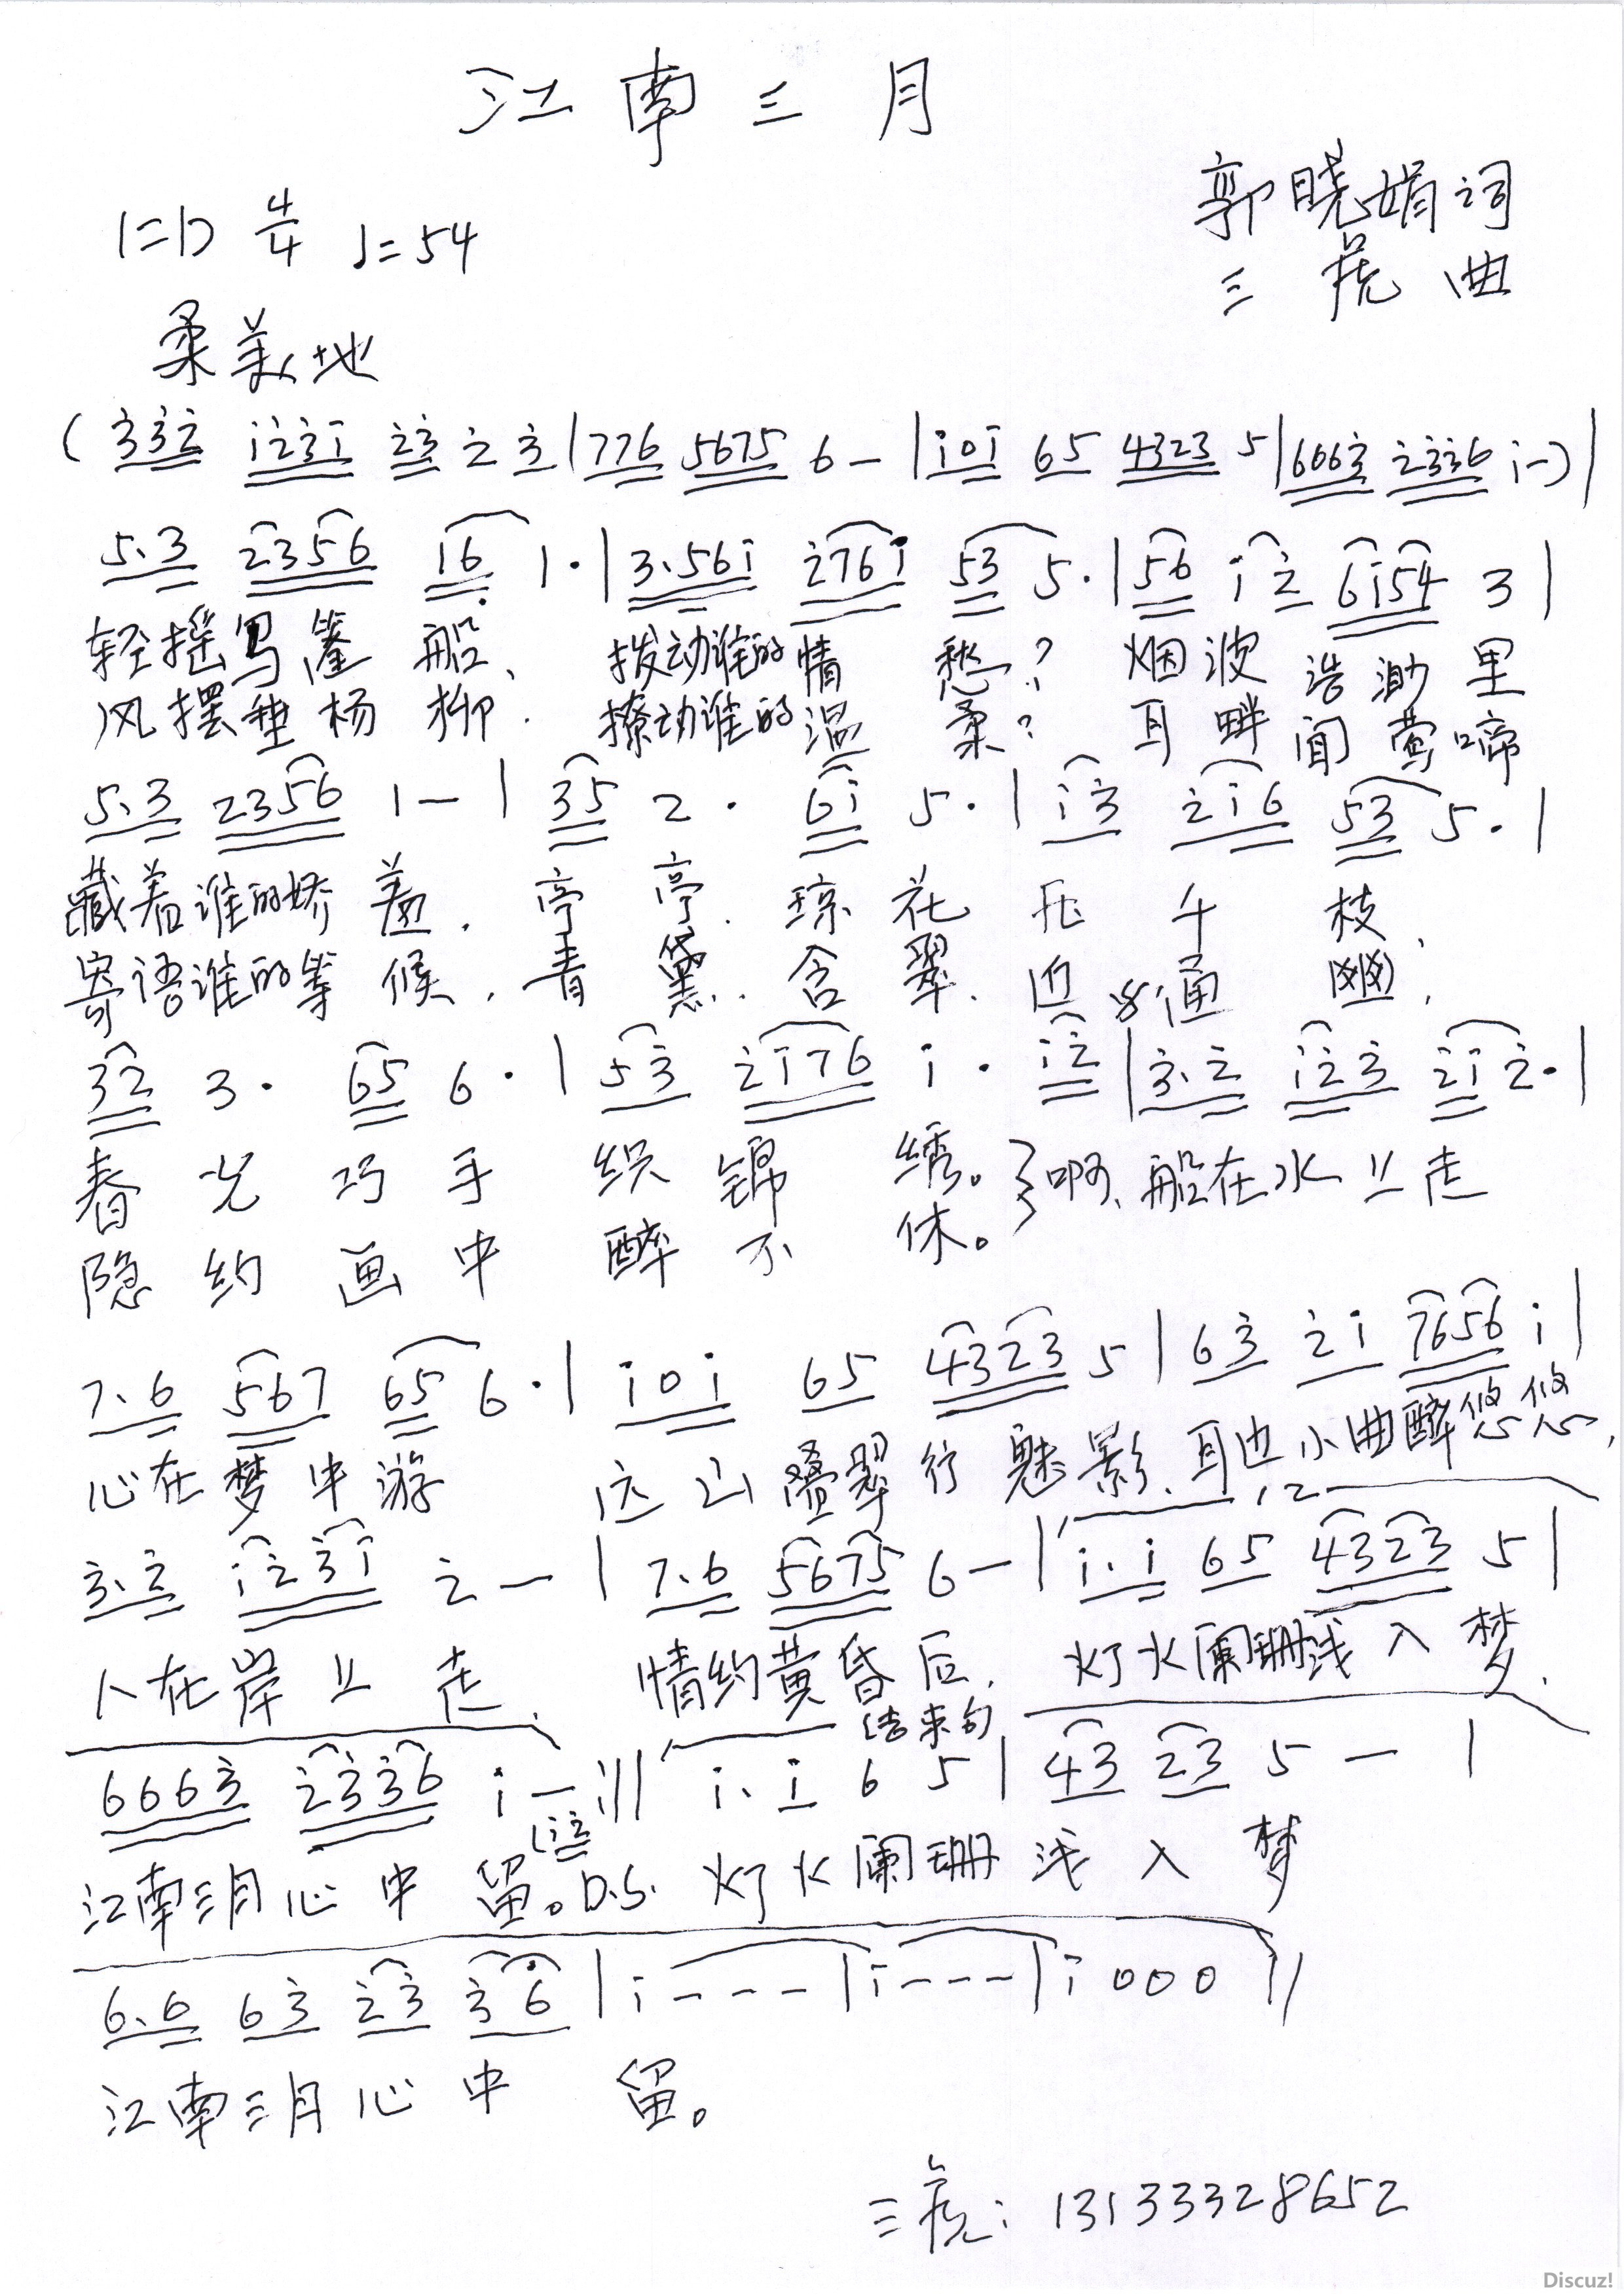 江南三月
郭晓娟词
1=D 4/4 ♩=54
三虎曲
柔美地
(3̇3̇2̇ 1̇2̇3̇1̇ 2̇3̇ 2̇ 3̇|776 5675 6-|1̇01̇ 65 4323 5|6663̇ 2̇3̇3̇6 1̇-)|
5.3 2356 16 1·|3.561̇ 2̇761̇ 53 5·|56 1̇2̇ 61̇54 3|
轻摇乌篷船、拨动谁的情愁？烟波浩渺里
风摆垂杨柳.撩动谁的温柔？耳畔闻莺啼
5.3 2356 1-|35 2· 61̇ 5·|1̇3̇ 2̇1̇6 53 5·|
藏着谁的娇羞.亭亭.琼花 千枝、
寄语谁的等候.青黛.含翠.通幽,
32 3· 65 6·|53̇ 2̇1̇76 1̇· 1̇2̇|3̇.2̇ 1̇2̇3̇ 2̇1̇2̇·|
春光巧手织锦绣。}啊、船在水上走
隐约画中醉不休。
7.6 567 65 6·|1̇01̇ 65 4323 5|63̇ 2̇1̇ 7656 1̇|
心在梦中游 远山叠翠行魅影、耳边小曲醉悠悠,
1,2
3̇.2̇ 1̇2̇3̇1̇ 2̇-|7.6 5675 6-|1̇.1̇ 65 4323 5|
人在岸上走、情约黄昏后,灯火阑珊浅入梦.
结束句
6663̇ 2̇3̇3̇6 1̇-:|| 1̇.1̇ 6 5|43 23 5-|
(1̇2̇
江南三月心中留。D.S.灯火阑珊浅入梦
6.6 63̇ 2̇3̇ 3̇6|1̇---|1̇---|1̇000||
江南三月心中留。
三虎:13133328652
Discuz!